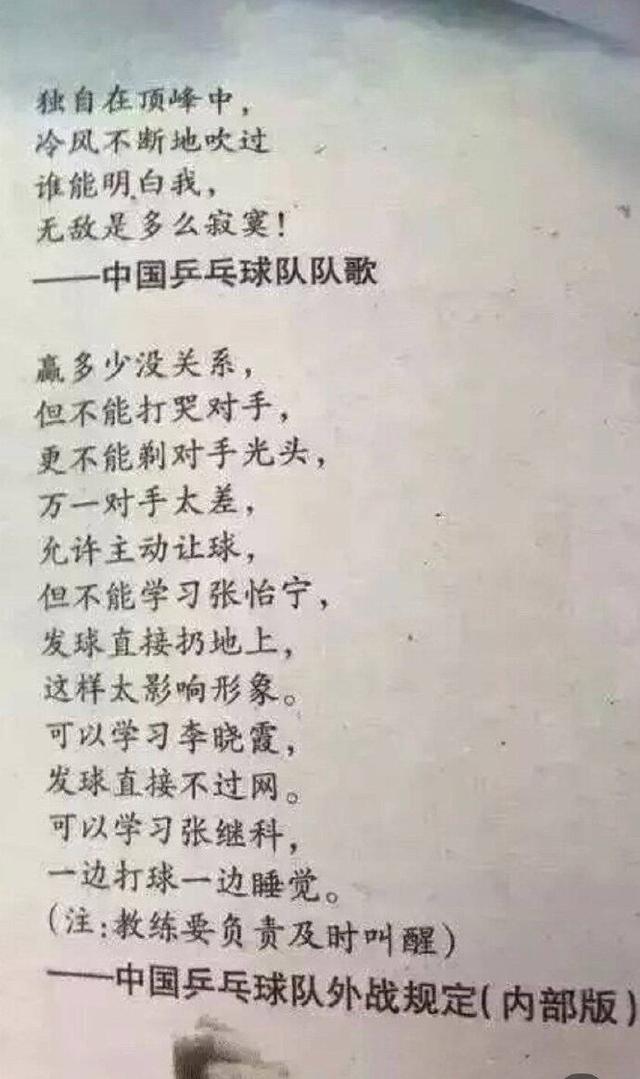 独自在顶峰中，
冷风不断地吹过
谁能明白我，
无敌是多么寂寞！
——中国乒乓球队队歌
赢多少没关系，
但不能打哭对手，
更不能剃对手光头，
万一对手太差，
允许主动让球，
但不能学习张怡宁，
发球直接扔地上，
这样太影响形象。
可以学习李晓霞，
发球直接不过网。
可以学习张继科，
一边打球一边睡觉。
（注：教练要负责及时叫醒）
——中国乒乓球队外战规定（内部版）